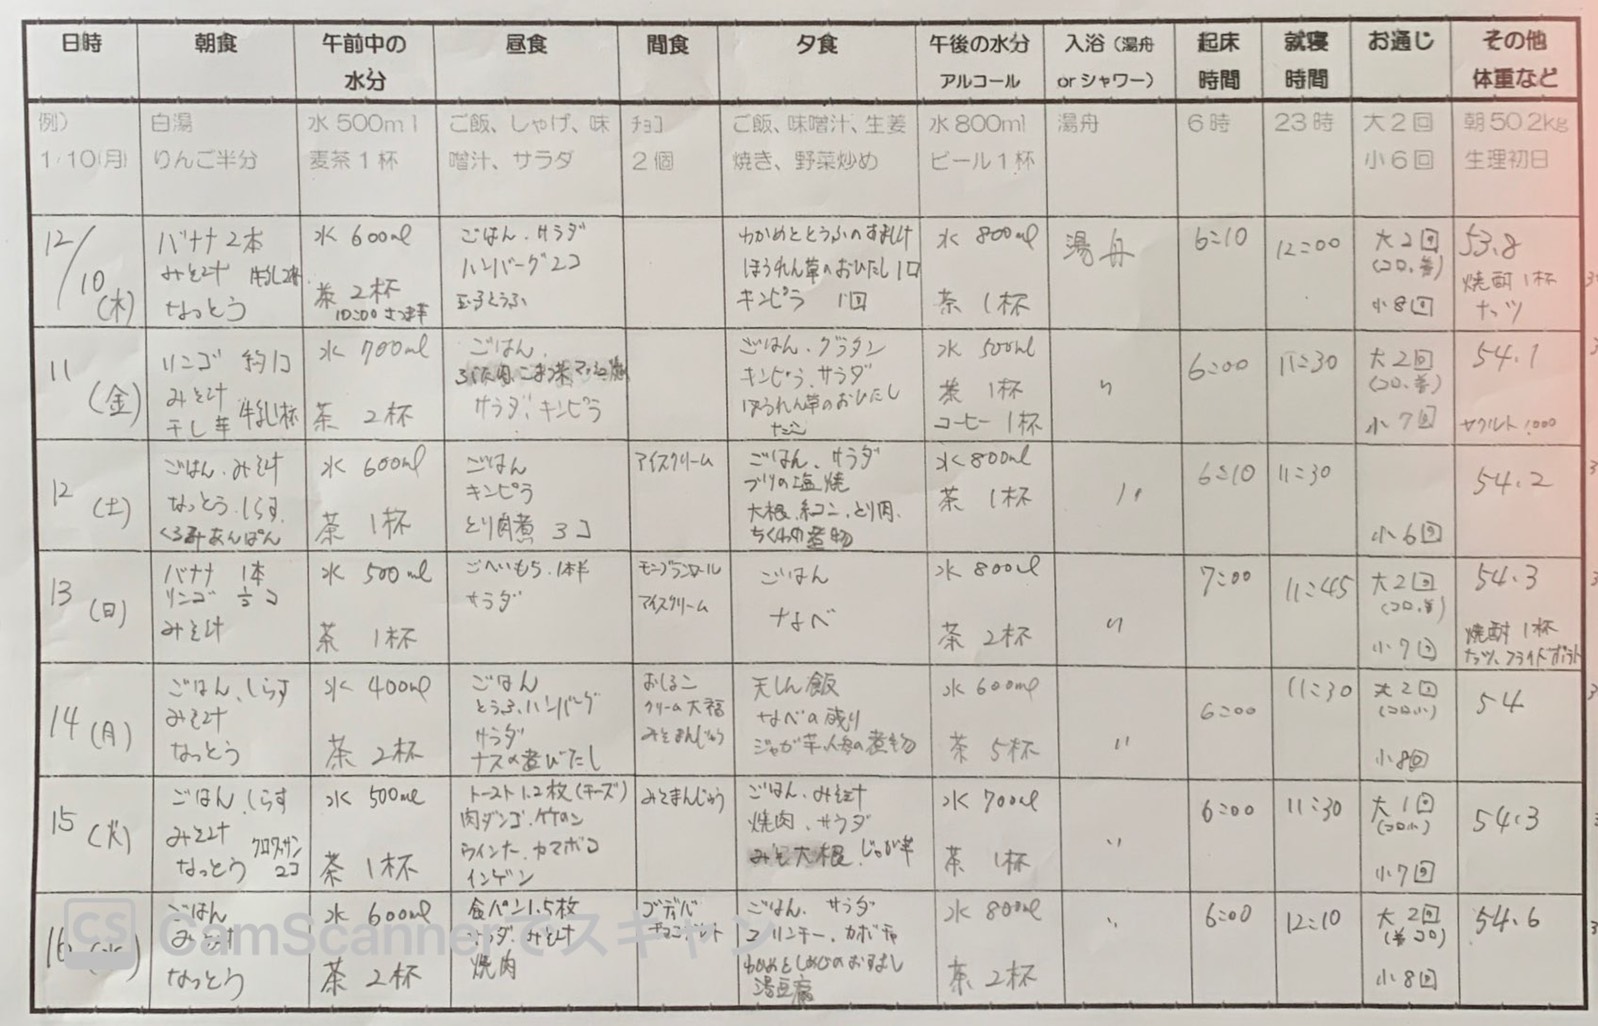 日時 朝食 午前中の水分 昼食 間食 夕食 午後の水分アルコール 入浴（湯舟orシャワー） 起床時間 就寝時間 お通じ その他体重など
例） 白湯 水500ml ご飯、しゃげ、味 チョコ ご飯、味噌汁、生姜 水800ml 湯舟 6時 23時 大2回 朝50.2kg
1/10(月) りんご半分 麦茶1杯 噌汁、サラダ 2個 焼き、野菜炒め ビール1杯 小6回 生理初日
12/10(木) バナナ2本 水600ml ごはん、サラダ わかめととうふのすまし汁 水800ml 湯舟 6:10 12:00 大2回 53.8
みそ汁 ハンバーグ2コ ほうれん草のおひたし (コロ、普) 焼酎1杯
なっとう 茶2杯 玉子とうふ キンピラ 1回 茶1杯 小8回 ナッツ
10:00
11(金) リンゴ 約1コ 水700ml ごはん、 ごはん、グラタン 水500ml 〃 6:00 11:30 大2回 54.1
みそ汁 キンピラ、サラダ 茶1杯 (コロ、普)
干し芋 牛乳1杯 茶2杯 サラダ、キンピラ ほうれん草のおひたし コーヒー1杯 小7回 ヤクルト1000
12(土) ごはん、みそ汁 水600ml ごはん アイスクリーム ごはん、サラダ 水800ml 〃 6:10 11:30 54.2
なっとう、しらす、 キンピラ ブリの塩焼 茶1杯
くるみあんぱん 茶1杯 とり肉煮 3コ 大根、糸コン、とり肉、 小6回
ちくわの煮物
13(日) バナナ 1本 水500ml ごへいもち、1本半 モンブランロール ごはん 水800ml 〃 7:00 11:45 大2回 54.3
リンゴ サラダ アイスクリーム なべ (コロ、普) 焼酎1杯
みそ汁 茶1杯 茶2杯 小7回 ナッツ、フライドポテト
14(月) ごはん、しらす 水400ml ごはん おしるこ 天しん飯 水600ml 〃 6:00 11:30 大2回 54
みそ汁 とうふ、ハンバーグ クリーム大福 なべの残り (コロ小)
なっとう 茶2杯 サラダ みそまんじゅう 茶5杯 小8回
ナスの煮びたし
15(火) ごはん、しらす 水500ml トースト1.2枚(チーズ) みそまんじゅう ごはん、みそ汁 水700ml 〃 6:00 11:30 大1回 54.3
みそ汁 クロワッサン2コ 肉ダンゴ、 焼肉、サラダ (コロ小)
なっとう 茶1杯 ウインナー、カマボコ みそ大根、じゃが芋 茶1杯 小7回
インゲン
16(水) ごはん 水600ml 食パン1.5枚 ゴディバ ごはん、サラダ 水800ml 〃 6:00 12:10 大2回 54.6
みそ汁 サラダ、みそ汁 (普コロ)
なっとう 茶2杯 焼肉 湯豆腐 茶2杯 小8回
CS CamScannerでスキャン